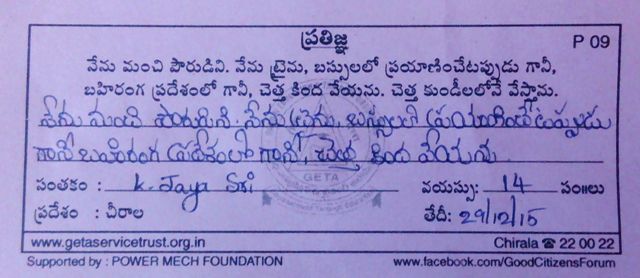 ప్రతిజ్ఞ
P 09
నేను మంచి పౌరుడిని. నేను ట్రైను, బస్సులలో ప్రయాణించేటప్పుడు గానీ,
బహిరంగ ప్రదేశంలో గానీ, చెత్త కింద వేయను. చెత్త కుండీలలోనే వేస్తాను.
నేను మంచి పౌరుడిని. నేను ట్రైను, బస్సులలో ప్రయాణించేటప్పుడు
గానీ బహిరంగ ప్రదేశంలో గానీ, చెత్త కింద వేయను.
GETA
సంతకం : K. Jaya Sri వయస్సు: 14 సం॥లు
ప్రదేశం : చీరాల తేదీ: 29/12/15
www.getaservicetrust.org.in Chirala ☎ 22 00 22
Supported by : POWER MECH FOUNDATION www.facebook.com/GoodCitizensForum